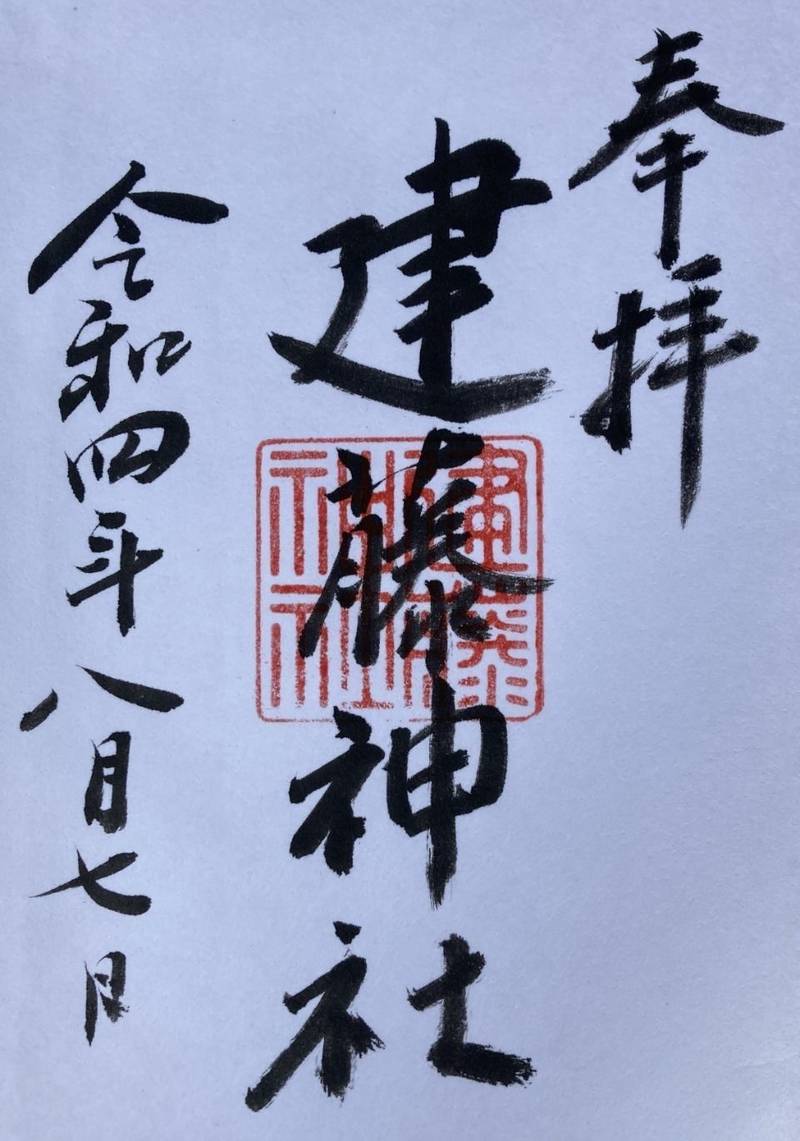 奉拝
建藤神社
建藤神社
令和四年八月七日